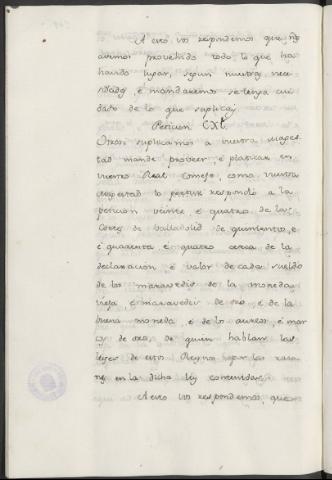 A esto vos respondemos que
avemos provehido todo lo que ha
havido lugar, segun nuestras nece
sidades, é mandaremos se tenga cui
dado de lo que suplicays
Peticion CXL.
Otrosi suplicamos a vuestra mages
tad mande proveer, é platicar en
vuestro Real Consejo, como vuestra
magestad lo respondió a la
peticion veinte é quatro de las
Cortes de Valladolid de quinientos, é
é quarenta é quatro cerca de la
declaracion, é valor de cada sueldo
de los maravedis de la moneda
vieja é maravedis de oro, é de la
buena moneda, é de los aureos, é mar
cos de oro, de quien hablan las
leyes de estos Reynos por las razo
nes en la dicha ley contenidas.
A esto vos respondemos, que